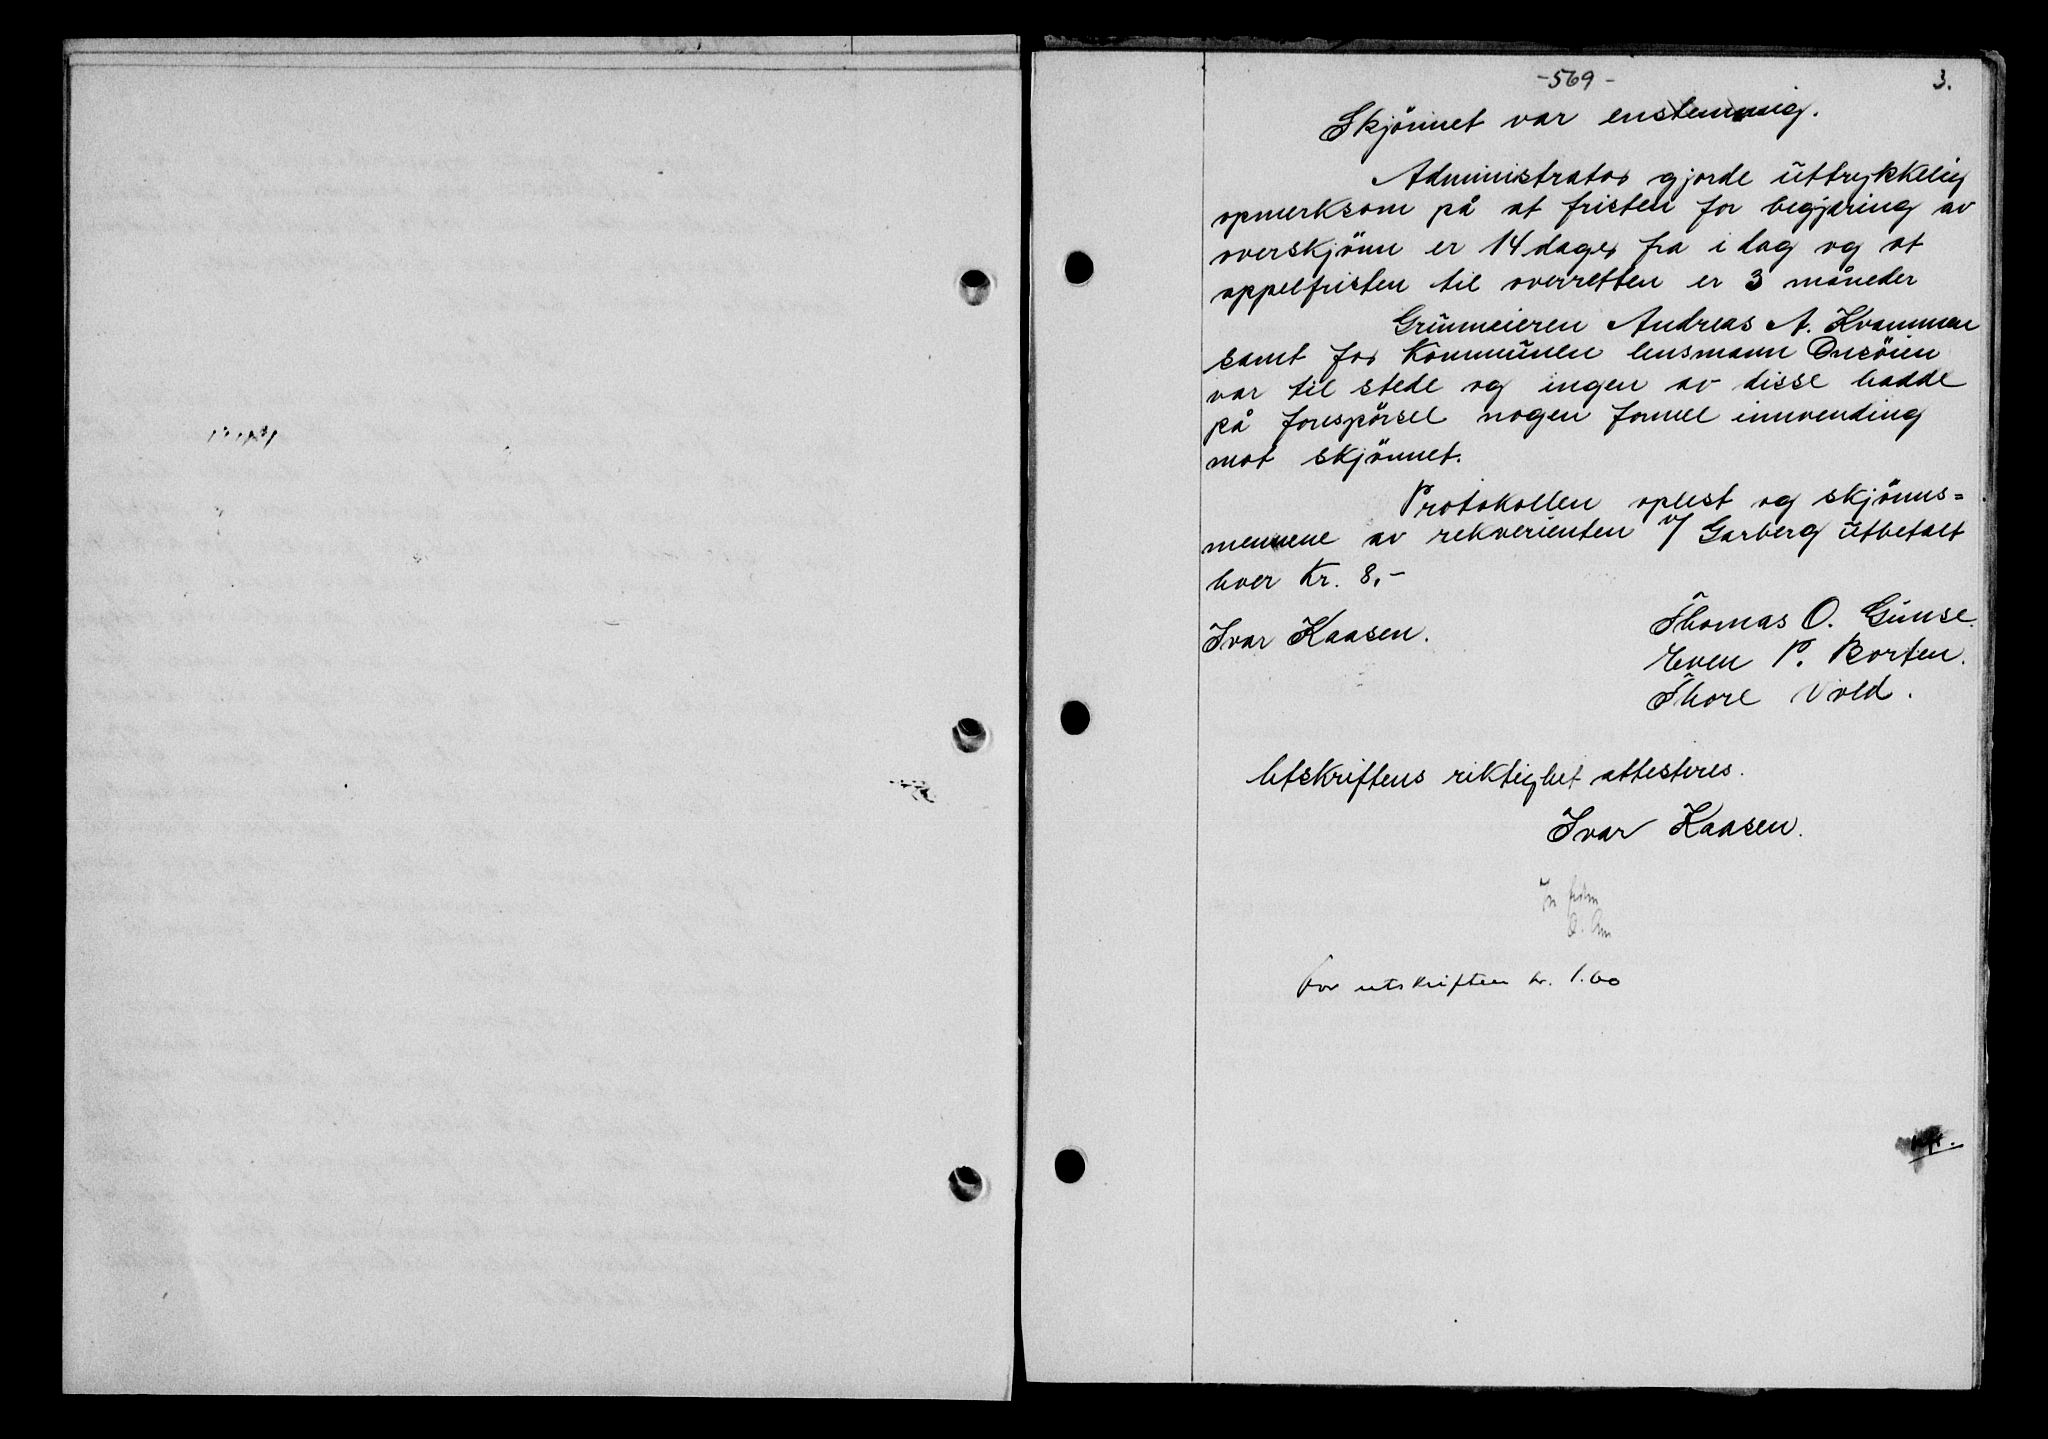 -569-
3.
Skjönnet var enstemmig.
Administrator gjorde uttrykkelig
opmerksom på at fristen for begjæring av
overskjönn er 14 dager fra i dag og at
appelfristen til overretten er 3 måneder
Grunneieren Andreas A. Kvammen
samt for Kommunen lensmann Onsöien
var til stede og ingen av disse hadde
på forespörsel nogen formel innvending
mot skjönnet.
Protokollen oplest og skjönns=
mennene av rekverienten v/ Garberg utbetalt
hver Kr. 8,-
Ivar Kaasen.
Thomas O. Gimse.
Even P. Borten.
Thore Vold.
Utskriftens riktighet attesteres.
Ivar Kaasen.
For utskriften kr. 1.60